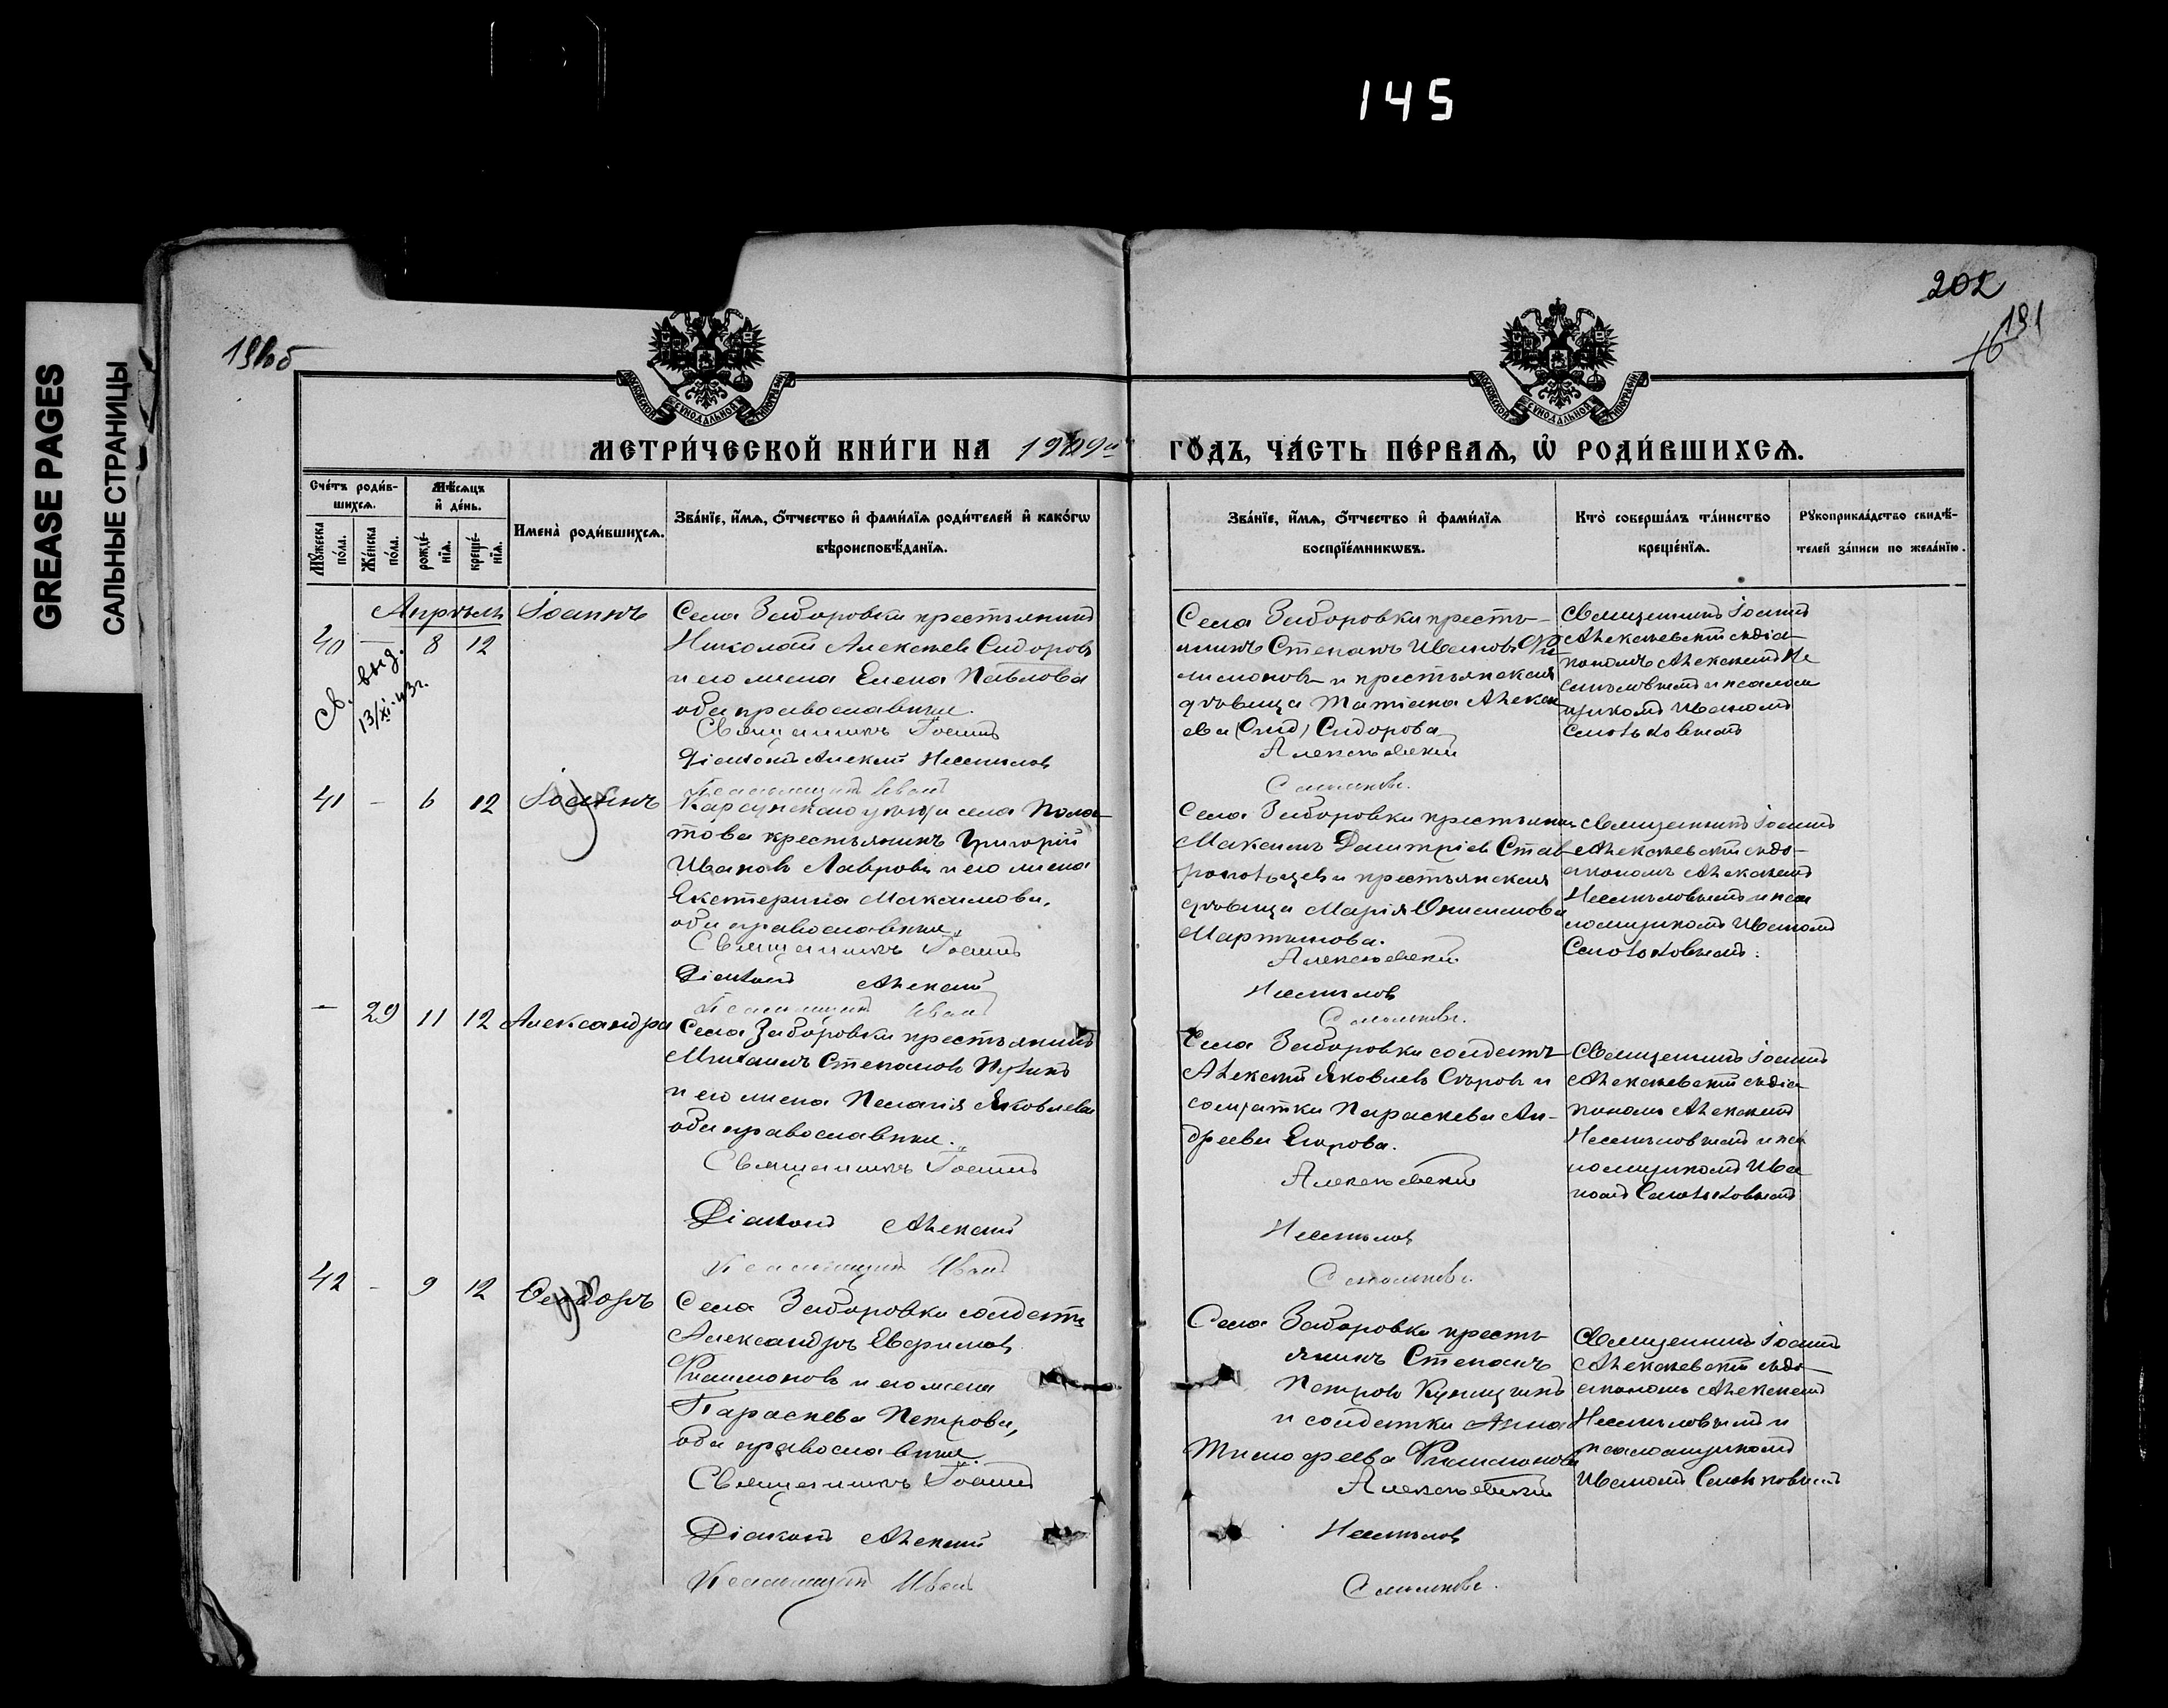 145
GREASE PAGES
САЛЬНЫЕ СТРАНИЦЫ
202
191
16
МЕТРИ́ЧЕСКОЙ КНИ́ГИ НА 1909й ГО́ДЪ, ЧА́СТЬ ПЕ́РВАѦ, Ѡ҆ РОДИ́ВШИХСѦ.
Сче́тъ роди́в-
шихсѧ.
Мꙋ́жеска по́ла.
Же́нска по́ла.
Мѣ́сѧцъ
и҆ де́нь.
рожде́-
нїѧ.
креще́-
нїѧ.
Имена̀ роди́вшихсѧ.
Зва́нїе, и҆́мѧ, ѻ҆́тчество и҆ фами́лїѧ роди́телей и҆ како́гѡ
вѣроисповѣ́данїѧ.
Зва́нїе, и҆́мѧ, ѻ҆́тчество и҆ фами́лїѧ
воспрїе́мникѡвъ.
Кто̀ соверша́лъ та́инство
креще́нїѧ.
Рꙋкоприкла́дство свидѣ́-
телей за́писи по жела́нїю.
Апрѣль
40 — 8 12 Іоаннъ
Св. выд.
13/XI-43г.
Села Заборовки крестьянинъ
Николай Алексѣевъ Сидоровъ
и его жена Елена Павлова
оба православные.
Священникъ Іоаннъ
Діаконъ Алексій Несмѣлов
Псаломщикъ Иванъ
Села Заборовки кресть-
янинъ Степанъ Ивановъ Фи
лимоновъ и крестьянская
дѣвица Татіана Алексѣ
ева Сидорова
Алексѣевскій
Смольковъ.
Священникъ Іоаннъ
Алексѣевскій съ діа-
кономъ Алексіемъ Не
смѣловымъ и псалом
щикомъ Иваномъ
Смольковымъ
41 - 6 12 Іоаннъ
ум
Карсунскаго уѣзда села
това крестьянинъ Григорій
Ивановъ Лавровъ и его жена
Екатерина Максимова,
оба православные.
Священникъ Іоаннъ
Діаконъ Алексій
Псаломщикъ Иванъ
Села Заборовки крестьянинъ
Максимъ Димитріевъ Став
и крестьянская
дѣвица Марія Онисимова
Мартынова.
Алексѣевскій
Несмѣлов
Смольковъ.
Священникъ Іоаннъ
Алексѣевскій съ ді-
акономъ Алексіемъ
Несмѣловымъ и пса
ломщикомъ Иваномъ
Смольковымъ.
- 29 11 12 Александра
Села Заборовки крестьянинъ
Михаилъ Степановъ
и его жена Пелагія Яковлева
оба православные.
Священникъ Іоаннъ
Діаконъ Алексій
Псаломщикъ Иванъ
Села Заборовки солдатъ
Алексій Яковлевъ Сыровъ и
солдатка Параскева Ан-
дреева Егорова.
Алексѣевскій
Несмѣлов
Смольковъ.
Священникъ Іоаннъ
Алексѣевскій съ діа-
кономъ Алексіемъ
Несмѣловымъ и пса
ломщикомъ Ива
номъ Смольковымъ
42 - 9 12 Ѳеодоръ
ум
Села Заборовки солдатъ
Александръ Евфимовъ
Филимоновъ и его жена
Параскева Петрова,
оба православные.
Священникъ Іоаннъ
Діаконъ Алексій
Псаломщикъ Иванъ
Села Заборовки кресть
янинъ Степанъ
Петровъ
и солдатка Анна
Тимофеева Филимонова
Алексѣевскій
Несмѣлов
Смольковъ.
Священникъ Іоаннъ
Алексѣевскій съ ді-
акономъ Алексіемъ
Несмѣловымъ и
псаломщикомъ
Иваномъ Смольковымъ